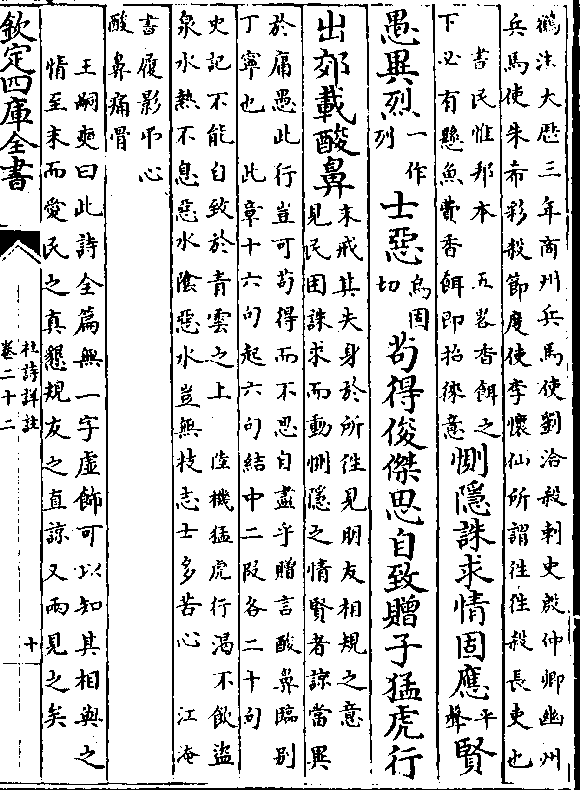 鶴注大厯三年商州兵馬使劉洽殺刺史殷仲卿幽州
兵馬使朱希彩殺節度使李懷仙所謂往往殺長吏也
書民惟邦本 五畧香餌之
下必有懸魚費香餌即招徠意
惻隱誅求情固應平聲賢
愚異烈一作列士惡烏固切苟得俊傑思自致贈子猛虎行
出郊載酸鼻
末戒其失身於所往見朋友相規之意
見民困誅求而動惻隱之情賢者諒當異
於庸愚此行豈可苟得而不思自盡乎贈言酸鼻臨别
丁寧也 此章十六句起六句結中二段各二十句
史記不能自致於青雲之上 陸機猛虎行渴不飲盜
泉水熱不息惡木陰惡木豈無枝志士多苦心 江淹
書履影弔心
酸鼻痛骨
王嗣奭曰此詩全篇無一字虛飾可以知其相與之
情至末而愛民之真懇規友之直諒又兩見之矣
欽定四庫全書
杜詩詳註
卷二十二
十